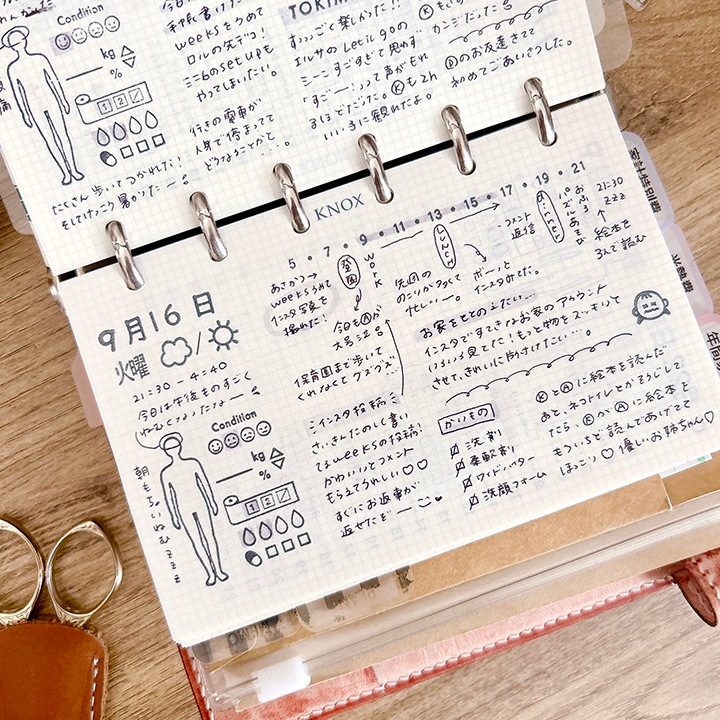 Condition
kg
%
1 2
たくさん歩いてつかれた!
そしてけっこう暑かった
手帳書けた
weeksをつめて
ロルの先デコ!
ミニ6のsetupも
やってしまいたい。
行きの電車が
人身で停まってて
どうなることかと
TOKIM
すっっっごく楽しかった!!
エルサのLet it goの
シーンすごすぎて思わず
「すご…」って声がもれ
るほどだった。Ⓚもユん
いい子に観れたよ。
カンジだった
Ⓓのお友達さて
初めてごあいさつした。
KNOX
5・7・9・11・13・15・17・19・21
あさかつ→
weeksうめて
インスタ写真を
撮れた!
登園
WORK
今日もⒶが
大号泣
保育園まで歩いて
くれなくてグズグズ…
先週の
のこりが多くて
忙しい〜。
LUNCH
ボーッと
インスタみてた。
コメント
返信
dinner
パズルあそび
おふろ
21:30
zzz
↑
絵本を
3人で読む
9月16日
火曜
21:30-4:40
今日は午後ものすごく
ねむくなったなー
Condition
kg
%
1 2
朝もちょいねむzzz
お家をととのえたい…
インスタですてきなお家のアカウント
いろいろ見てた!もっと物をスッキリ
させて、きれいに片付けたい…。
インスタ投稿
さいきんたのしく書い
てるweeksの投稿!
かわいいってコメント
もらえてうれしい♡♡
すぐにお返事が
返せたぞー
かいもの
洗剤
柔軟剤
ワイドハイター
洗顔フォーム
ⓀとⒶに絵本を読んだ
あと、ネコトイレとかそうじして
たら、ⓀがⒶに絵本を
もういちど読んであげてて
ほっこり♡優しいお姉ちゃん♡
家計特別費
光熱費
年間